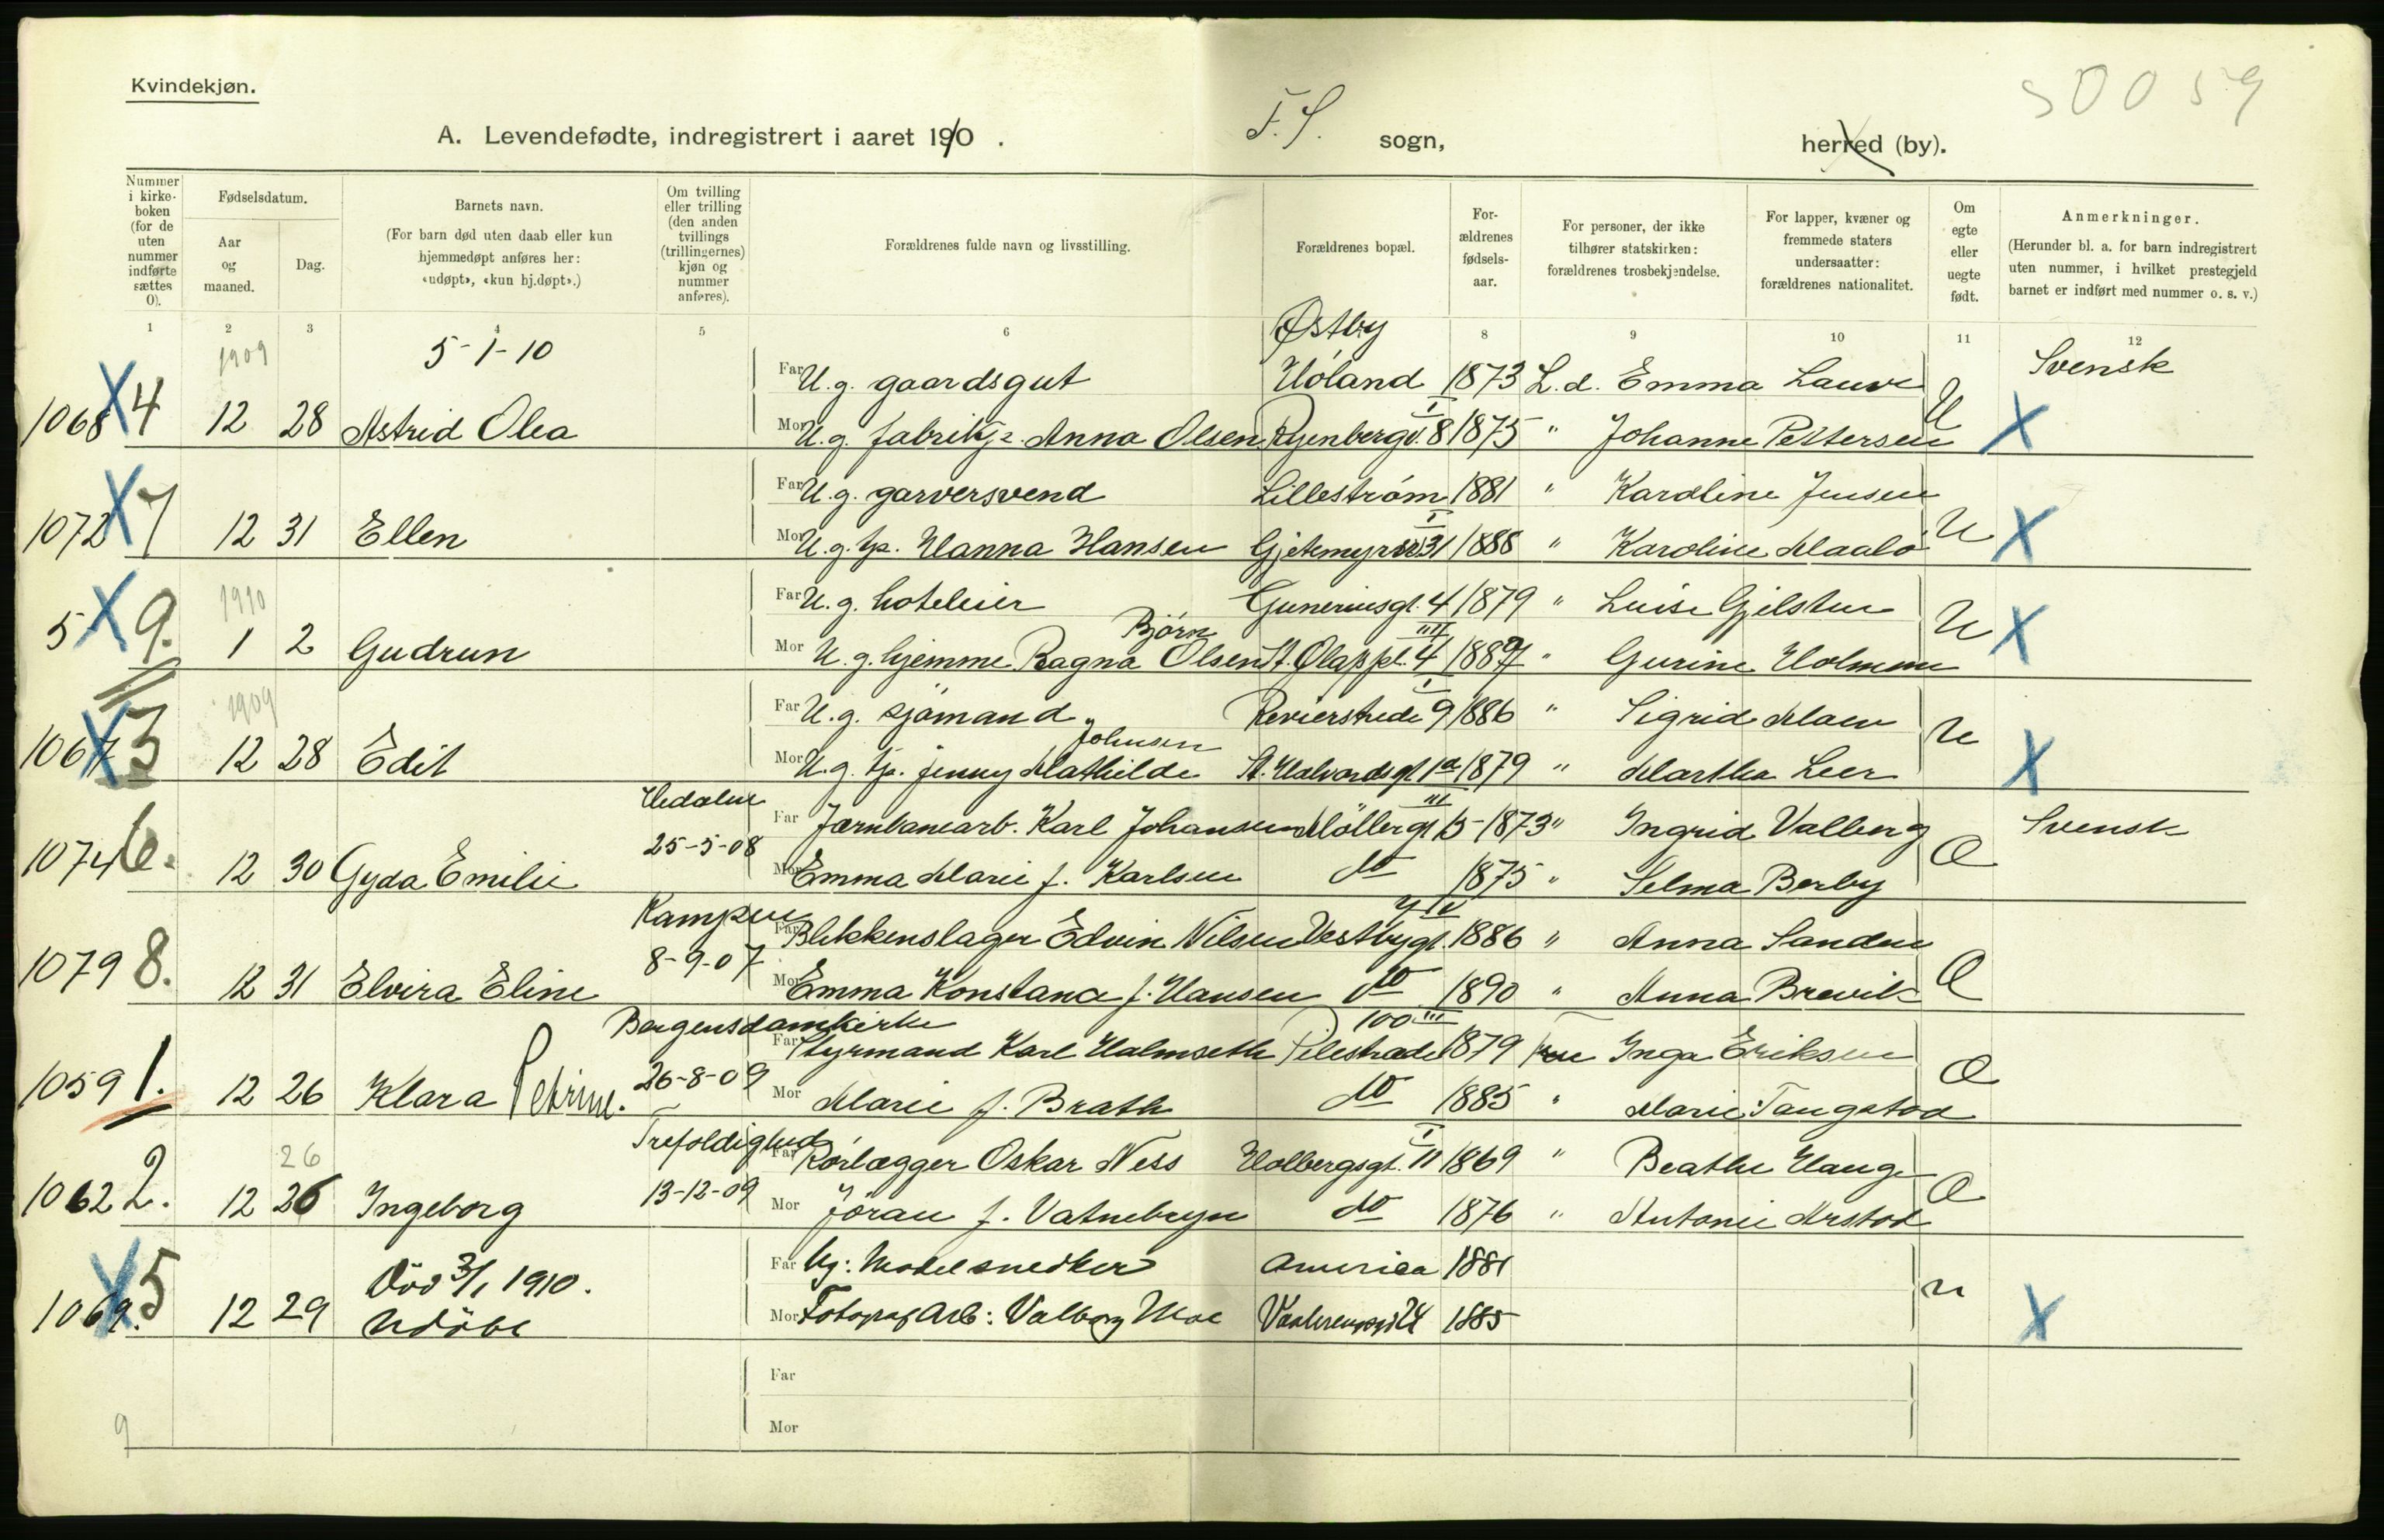 Kvindekjøn.
S0059
A. Levendefødte, indregistrert i aaret 1910.
F.S. sogn,
herred (by).
Nummer i kirkeboken (for de uten nummer indførte sættes 0).
Fødselsdatum.
Aar og maaned.
Dag.
Barnets navn.
(For barn død uten daab eller kun hjemmedøpt anføres her: «udøpt», «kun hj.døpt».)
Om tvilling eller trilling (den anden tvillings (trillingernes) kjøn og nummer anføres).
Forældrenes fulde navn og livsstilling.
Forældrenes bopæl.
Forældrenes fødselsaar.
For personer, der ikke tilhører statskirken: forældrenes trosbekjendelse.
For lapper, kvæner og fremmede staters undersaatter: forældrenes nationalitet.
Om egte eller uegte født.
Anmerkninger.
(Herunder bl. a. for barn indregistrert uten nummer, i hvilket prestegjeld barnet er indført med nummer o. s. v.)
1 2 3 4 5 6 8 9 10 11 12
1909 5-1-10 Østby
Far U.g. gaardsgut Höland 1873 L.d. Emma Svensk
1068 X 4 12 28 Astrid Olea Mor U.g. Anna Olsen Ryenbergv. 8 I 1875 " Johanne Pettersen U X
Far U.g. garversvend Lilleström 1881 " Karoline Jensen
1072 X 7 12 31 Ellen Mor U.g. tj. Hanna Hansen 31 I 1888 " Karoline U X
1910 Far U.g. hoteleier 4 1879 " Luise
5 X 9. 1 2 Gudrun Mor U.g. hjemme Ragna Björn Olsen St. Olaf pl. 4 III 1887 " Gurine U X
1909 Far U.g. sjömand 9 I 1886 " Sigrid Moen
1067 X 3 12 28 Edit Mor U.g. tj. Jenny Mathilde Johnsen St. Halvardsgt 1a 1879 " Martha Leer U X
Hedalen Far Jærnbanearb. Karl Johansen Möllergt 15 III 1873 " Ingrid Valberg Svensk
1074 6. 12 30 Gyda Emilie 25-5-08 Mor Emma Marie f. Karlsen do 1875 " Selma Berby Æ
Kampen Far Blikkenslager Edvin Nilsen Vestbygt. 1886 " Anna Sanden
1079 8. 12 31 Elvira Eline 8-9-07 Mor Emma Konstance f. Hansen do 1890 " Anna Brevik Æ
Bergens domkirke Far Styrmand Karl Halmseth Pilestrædet 100 III 1879 Inga Eriksen
1059 1. 12 26 Klara Petrine. 26-8-09 Mor Marie f. Brath do 1885 " Marie Æ
26 Trefoldighed Far Rörlægger Oskar Ness Holbergsgt. 11 I 1869 " Beathe Hauge
1062 2. 12 26 Ingeborg 13-12-09 Mor Jöran f. Vatnebryn do 1876 " Antonie Æ
Död 3/1 1910. Far Ug: Modelsnedker America 1881
1069. X 5 12 29 Udöbt Mor Fotograf Arb: Valborg Moe 24 1885 u X
Far
9 Mor